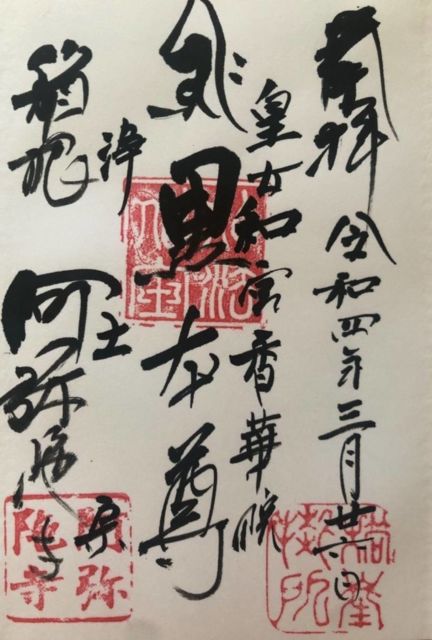 奉拝 令和四年三月廿六日
皇女和宮香華院
黒本尊
浄土宗
箱根 阿弥陀寺
阿弥陀寺